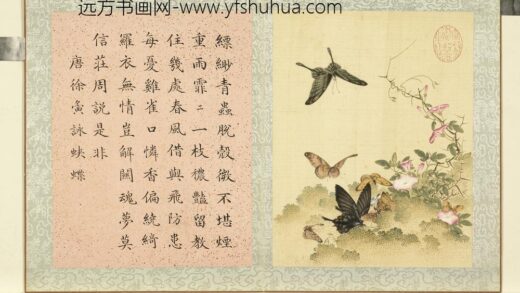 远方书画网-www.yfshuhua.com
縹緲青蟲脫殼微不堪煙
重雨霏〻一枝穠豔留教
住幾處春風借與飛防患
每憂雞雀口憐香偏繞綺
羅衣無情豈解關魂夢莫
信莊周說是非
唐徐夤詠蛺蝶